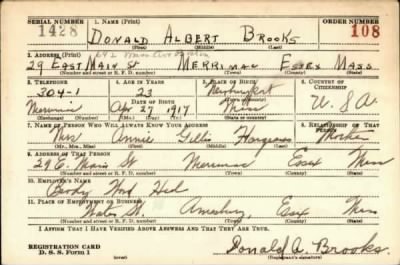 SERIAL NUMBER 1. NAME (Print) ORDER NUMBER
1428 DONALD ALBERT BROOKS 108
(First) (Middle) (Last)
2. ADDRESS (Print)
29 EAST MAIN ST MERRIMAC ESSEX MASS.
(Number and street or R. F. D. number) (Town) (County) (State)
3. TELEPHONE 4. AGE IN YEARS 5. PLACE OF BIRTH 6. COUNTRY OF CITIZENSHIP
304-1 23 Newburyport U. S. A.
DATE OF BIRTH
Merrimac Apr 27 1917 Mass
(Exchange) (No.) (Mo.) (Day) (Yr.) (State or country)
7. NAME OF PERSON WHO WILL ALWAYS KNOW YOUR ADDRESS 8. RELATIONSHIP OF THAT PERSON
Mrs Annie Gillis Mother
(Mr., Mrs., Miss) (First) (Middle) (Last)
9. ADDRESS OF THAT PERSON
29 E. Main St Merrimac Essex Mass
(Number and street or R. F. D. number) (Town) (County) (State)
10. EMPLOYER'S NAME
11. PLACE OF EMPLOYMENT OR BUSINESS
Water St. Amesbury, Essex Mass
(Number and street or R. F. D. number) (Town) (County) (State)
I AFFIRM THAT I HAVE VERIFIED ABOVE ANSWERS AND THAT THEY ARE TRUE.
REGISTRATION CARD
D. S. S. Form 1 (over) Donald A. Brooks
(Registrant's signature)